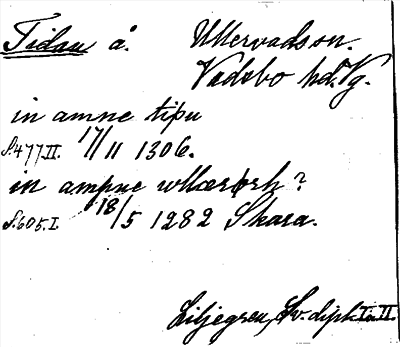 Tidan å. Ullervads sn.
Vadsbo hd. Vg.
in amne tipu
S. 477. II. 17/11 1306.
in ampne wllærsrh ?
S. 605. I. 18/5 1282 Skara.
Liljegren, Sv. dipl. I o. II.